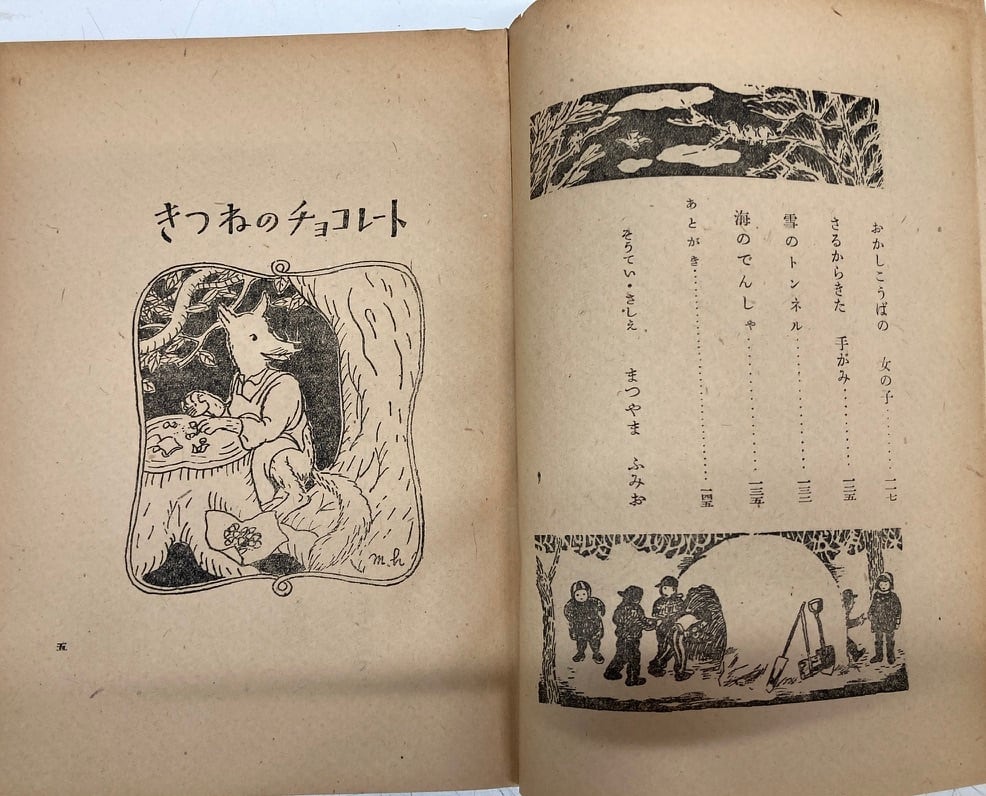 おかしこうばの 女の子‥‥‥‥一一七
さるからきた 手がみ‥‥‥‥一二五
雪のトンネル‥‥‥‥一三一
海のでんしゃ‥‥‥‥一三五
あとがき‥‥‥‥一四五
そうてい・さしえ まつやま ふみお
きつねのチョコレート
m.h
五